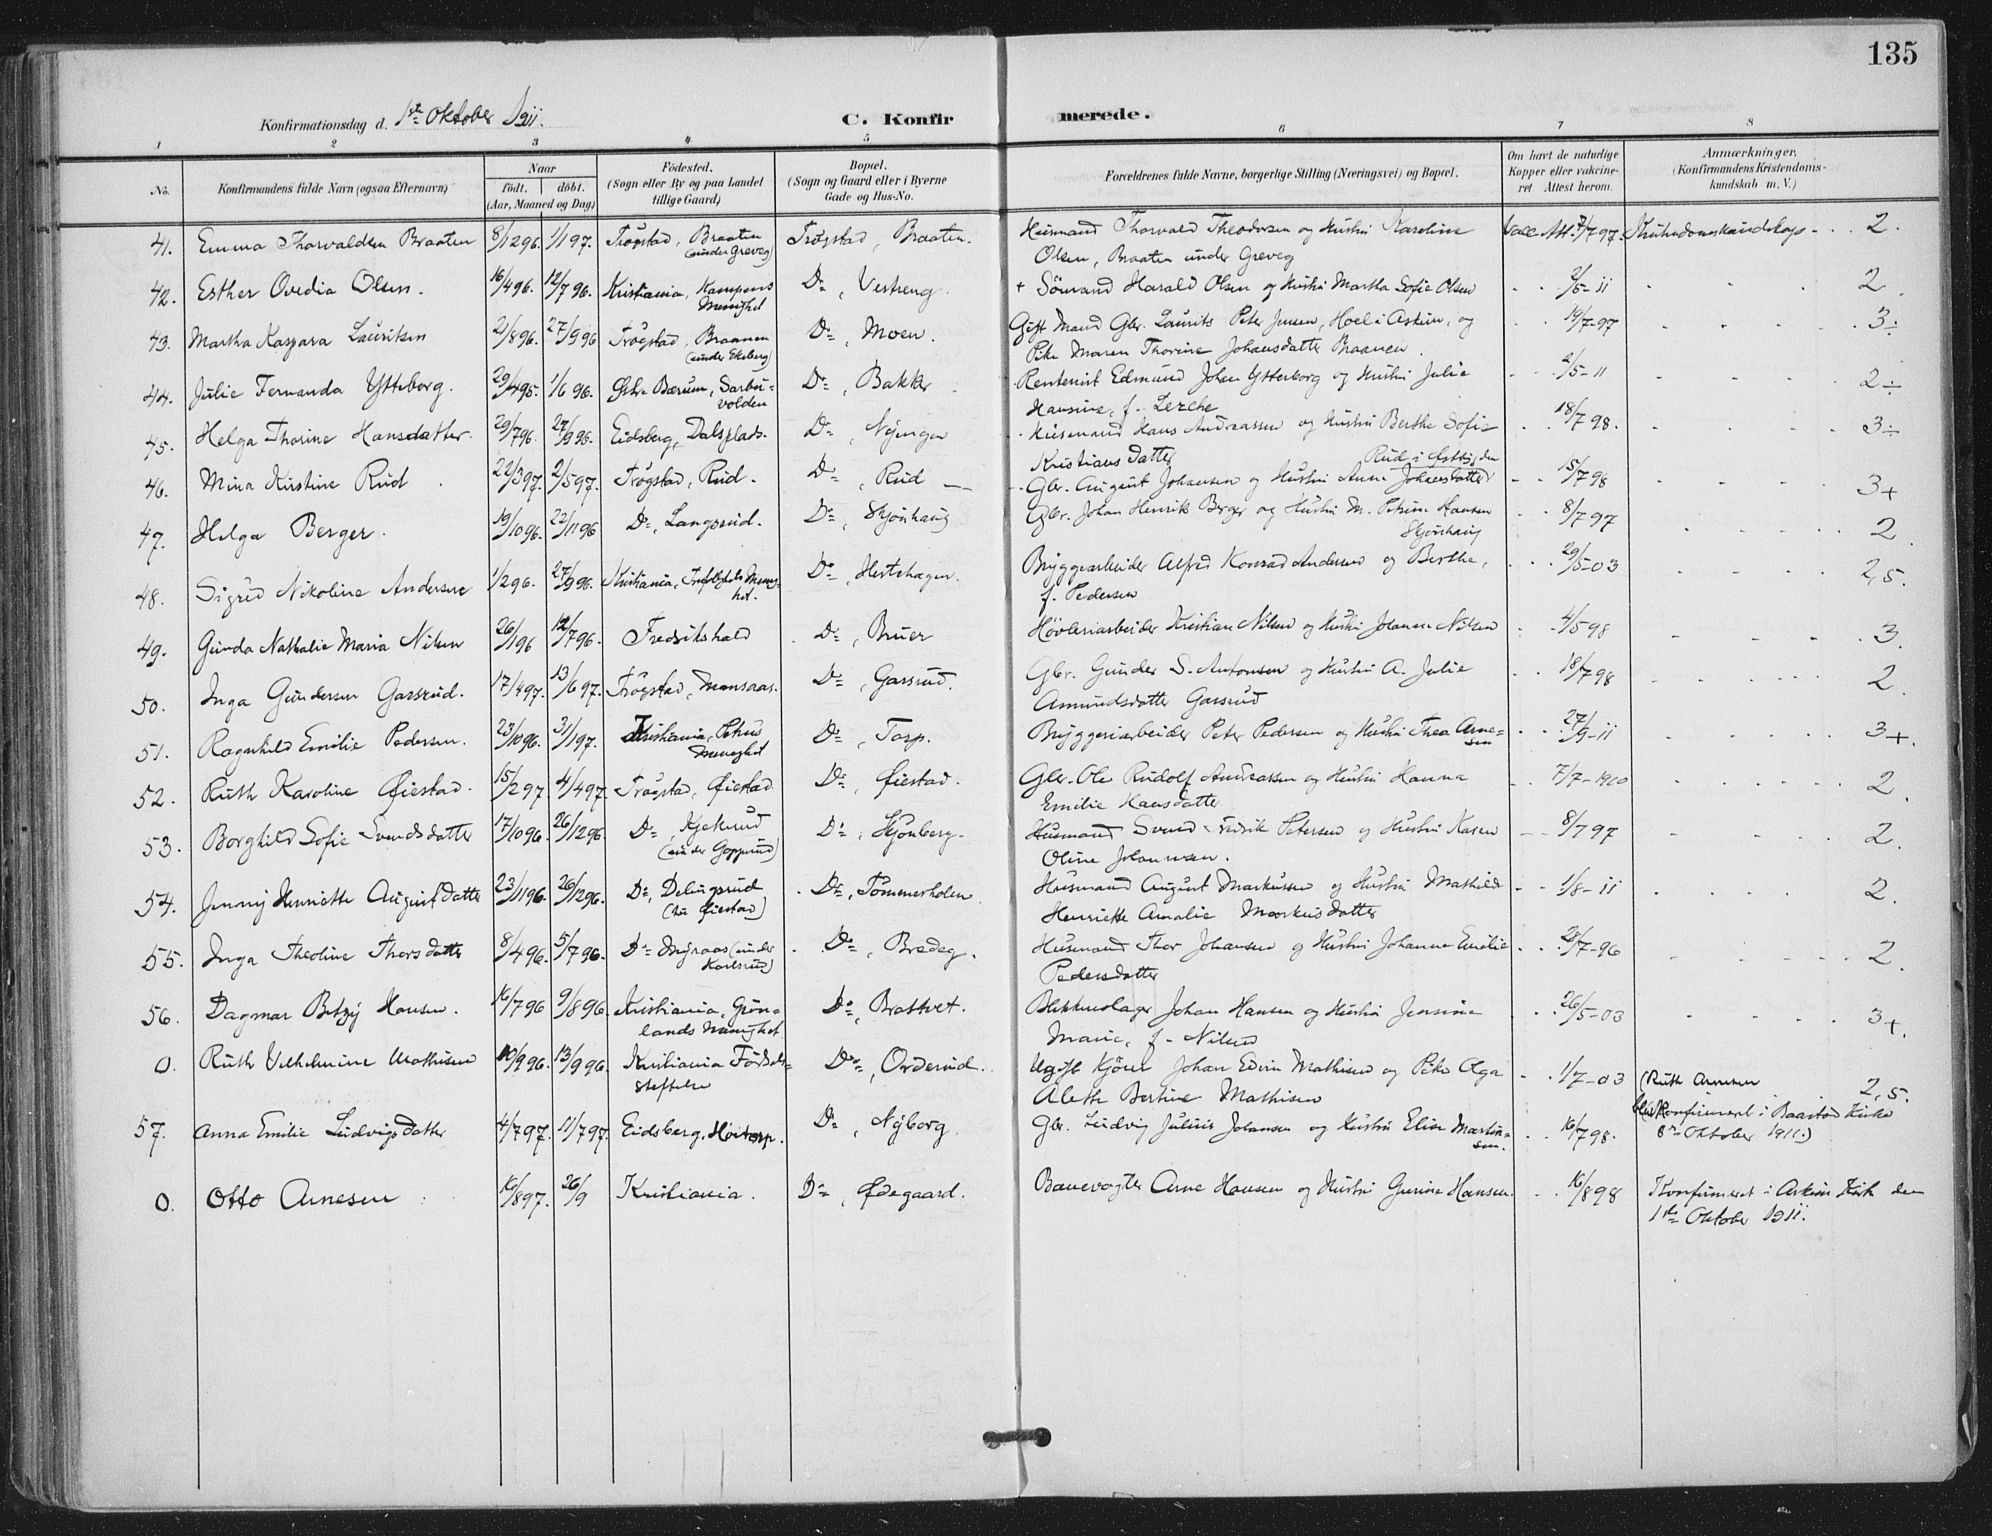 135
Konfirmationsdag d. 1ste Oktober 1911.
C. Konfir merede.
1 2 3 4 5 6 7 8
No. Konfirmandens fulde Navn (ogsaa Efternavn) Naar født. døbt. (Aar, Maaned og Dag) Fødested. (Sogn eller By og paa Landet tillige Gaard) Bopæl. (Sogn og Gaard eller i Byerne Gade og Hus-No. Forældrenes fulde Navne, borgerlige Stilling (Næringsvei) og Bopæl. Om havt de naturlige Kopper eller vakcineret. Attest herom. Anmærkninger. (Konfirmandens Kristendomskundskab m. V.)
41. Emma Thorvaldsen Braaten 8/12 96. 1/1 97. Trøgstad, Braaten (under Greveg) Trøgstad Braaten. Husmand Thorvald Theodorsen og Hustru Karoline Vacc. Att. 7/7 97. Kristendomskundskap 2.
Olsen, Braaten under Greveg
42. Esther Ovedia Olsen. 16/4 96. 12/7 96. Kristiania, Kampens Menighet Do, Vestreng. + Sömand Harald Olsen og Hustru Martha Sofie Olsen 2/5-11 2.
43. Martha Kaspara Lauritsen 2/8 96. 27/9 96 Trøgstad, Braanen (under Ekeberg) Do, Moen. Gift Mand Gbr. Laurits Peter Jensen, Hoel i Askim, og 19/7-97 3÷
Pike Maren Thorine Johansdatter Braanen.
44. Julie Fernanda Ytteborg. 29/4 95. 1/6 96. Østre Bærum, Sarbuvolden Do, Bakker Rentenist Edmund Johan Ytterborg og Hustru Julie 2/5-11 2÷
Hansine, f. Lerche
45. Helga Thorine Hansdatter. 29/7 96. 27/9 96. Eidsberg, Dalsplads. Do, Nyengen Husmand Hans Andreassen og Hustru Berthe Sofie 18/7 98. 3÷
Kristiansdatter
46. Mina Kirstine Rud 22/3 97. 2/5 97. Trøgstad, Rud. Do, Rud Gbr. August Johansen og Hustru Anna Johansdatter 15/7 98 3+
47. Helga Berger. 19/10 96. 22/11 96 Do, Langsrud. Do, Skjönhaug Gbr. Johan Henrik Berger og Hustru M. Petrine Hansen 8/7 97 2.
Skjönhaug
48. Sigrid Nikoline Andersen 1/2 96. 27/9 96. Kristiania, Do, Hestehagen. Bryggearbeider Alfred Konrad Andersen og Berthe, 29/5-03 2,5.
f. Pedersen
49. Gunda Nathalie Maria Nilsen 26/1 96 12/7 96. Fredrikshald Do, Bruer Høvleriarbeider Kristian Nilsen og Hustru Johanne Nilsen 4/5 98 3.
50. Inga Gundersen Gassrud. 17/4 97. 13/6 97. Trøgstad, Monsaas. Do, Gassrud. Gbr. Gunder S. Antonsen og Hustru A. Julie 18/7 98 2.
Amundsdatter Gassrud
51. Ragnhild Emilie Pedersen. 23/10 96. 31/1 97. Kristiania, Petrus Menighet Do, Torp. Bryggeriarbeider Peter Pedersen og Hustru Thea Arnesen 27/9-11 3+.
52. Ruth Karoline Øiestad. 15/2 97 4/4 97. Trøgstad, Øiestad Do, Øiestad. Gbr. Ole Rudolf Andreassen og Hustru Hanna 7/7-1900 2.
Emilie Hansdatter
53. Borghild Sofie Svendsdatter 17/10 96. 26/12 96. Do, Kjekrud (under Gopperud) Do, Skjönberg. Husmand Svend Fredrik Petersen og Hustru Karen 8/7 97 2.
Oline Johannesen.
54. Jenny Henriette Augustdatter 23/11 96. 26/12 96. Do, Delingsrud (hu Øiestad) Do, Tömmerholen. Husmand August Markussen og Hustru Mathilde 1/8-11 2.
Henriette Amalie Markusdatter
55. Inga Theoline Thorsdatter 8/4 96. 5/7 96. Do Myraas (under Karlsrud) Do, Bredeg. Husmand Thor Johansen og Hustru Johanne Emilie 28/7-96 2.
Pedersdatter
56. Dagmar Betzy Hansen. 16/7 96 9/8 96. Kristiania, Grönlands Menighet Do, Brattvet. Blikkenslager Johan Hansen og Hustru Jensine 26/5-03 3+.
Marie, f. Nilsen
0. Ruth Vilhelmine Mathisen 10/9 96. 13/9 96. Kristiania Fødselsstiftelse Do, Orderud. Ugift Kjörer Johan Edvin Mathisen og Pike Olga 1/7-03 (Ruth Arnesen 2,5.
Alette Bertine Mathisen blev Konfirmert i Baastad Kirke
57. Anna Emilie Ludvigsdatter 4/7 97. 11/7 97. Eidsberg, Höitorp. Do, Nyborg. Gbr. Ludvig Julius Johansen og Hustru Elise Martinsen. 16/7 98. 8de Oktober 1911.)
0. Otto Arnesen 16/8 97. 26/9 Kristiania. Do, Ødegaard. Banevogter Arne Hansen og Hustru Gurine Hansen. 16/8 98 Konfirmeret i Askim Kirke den
1ste Oktober 1911.